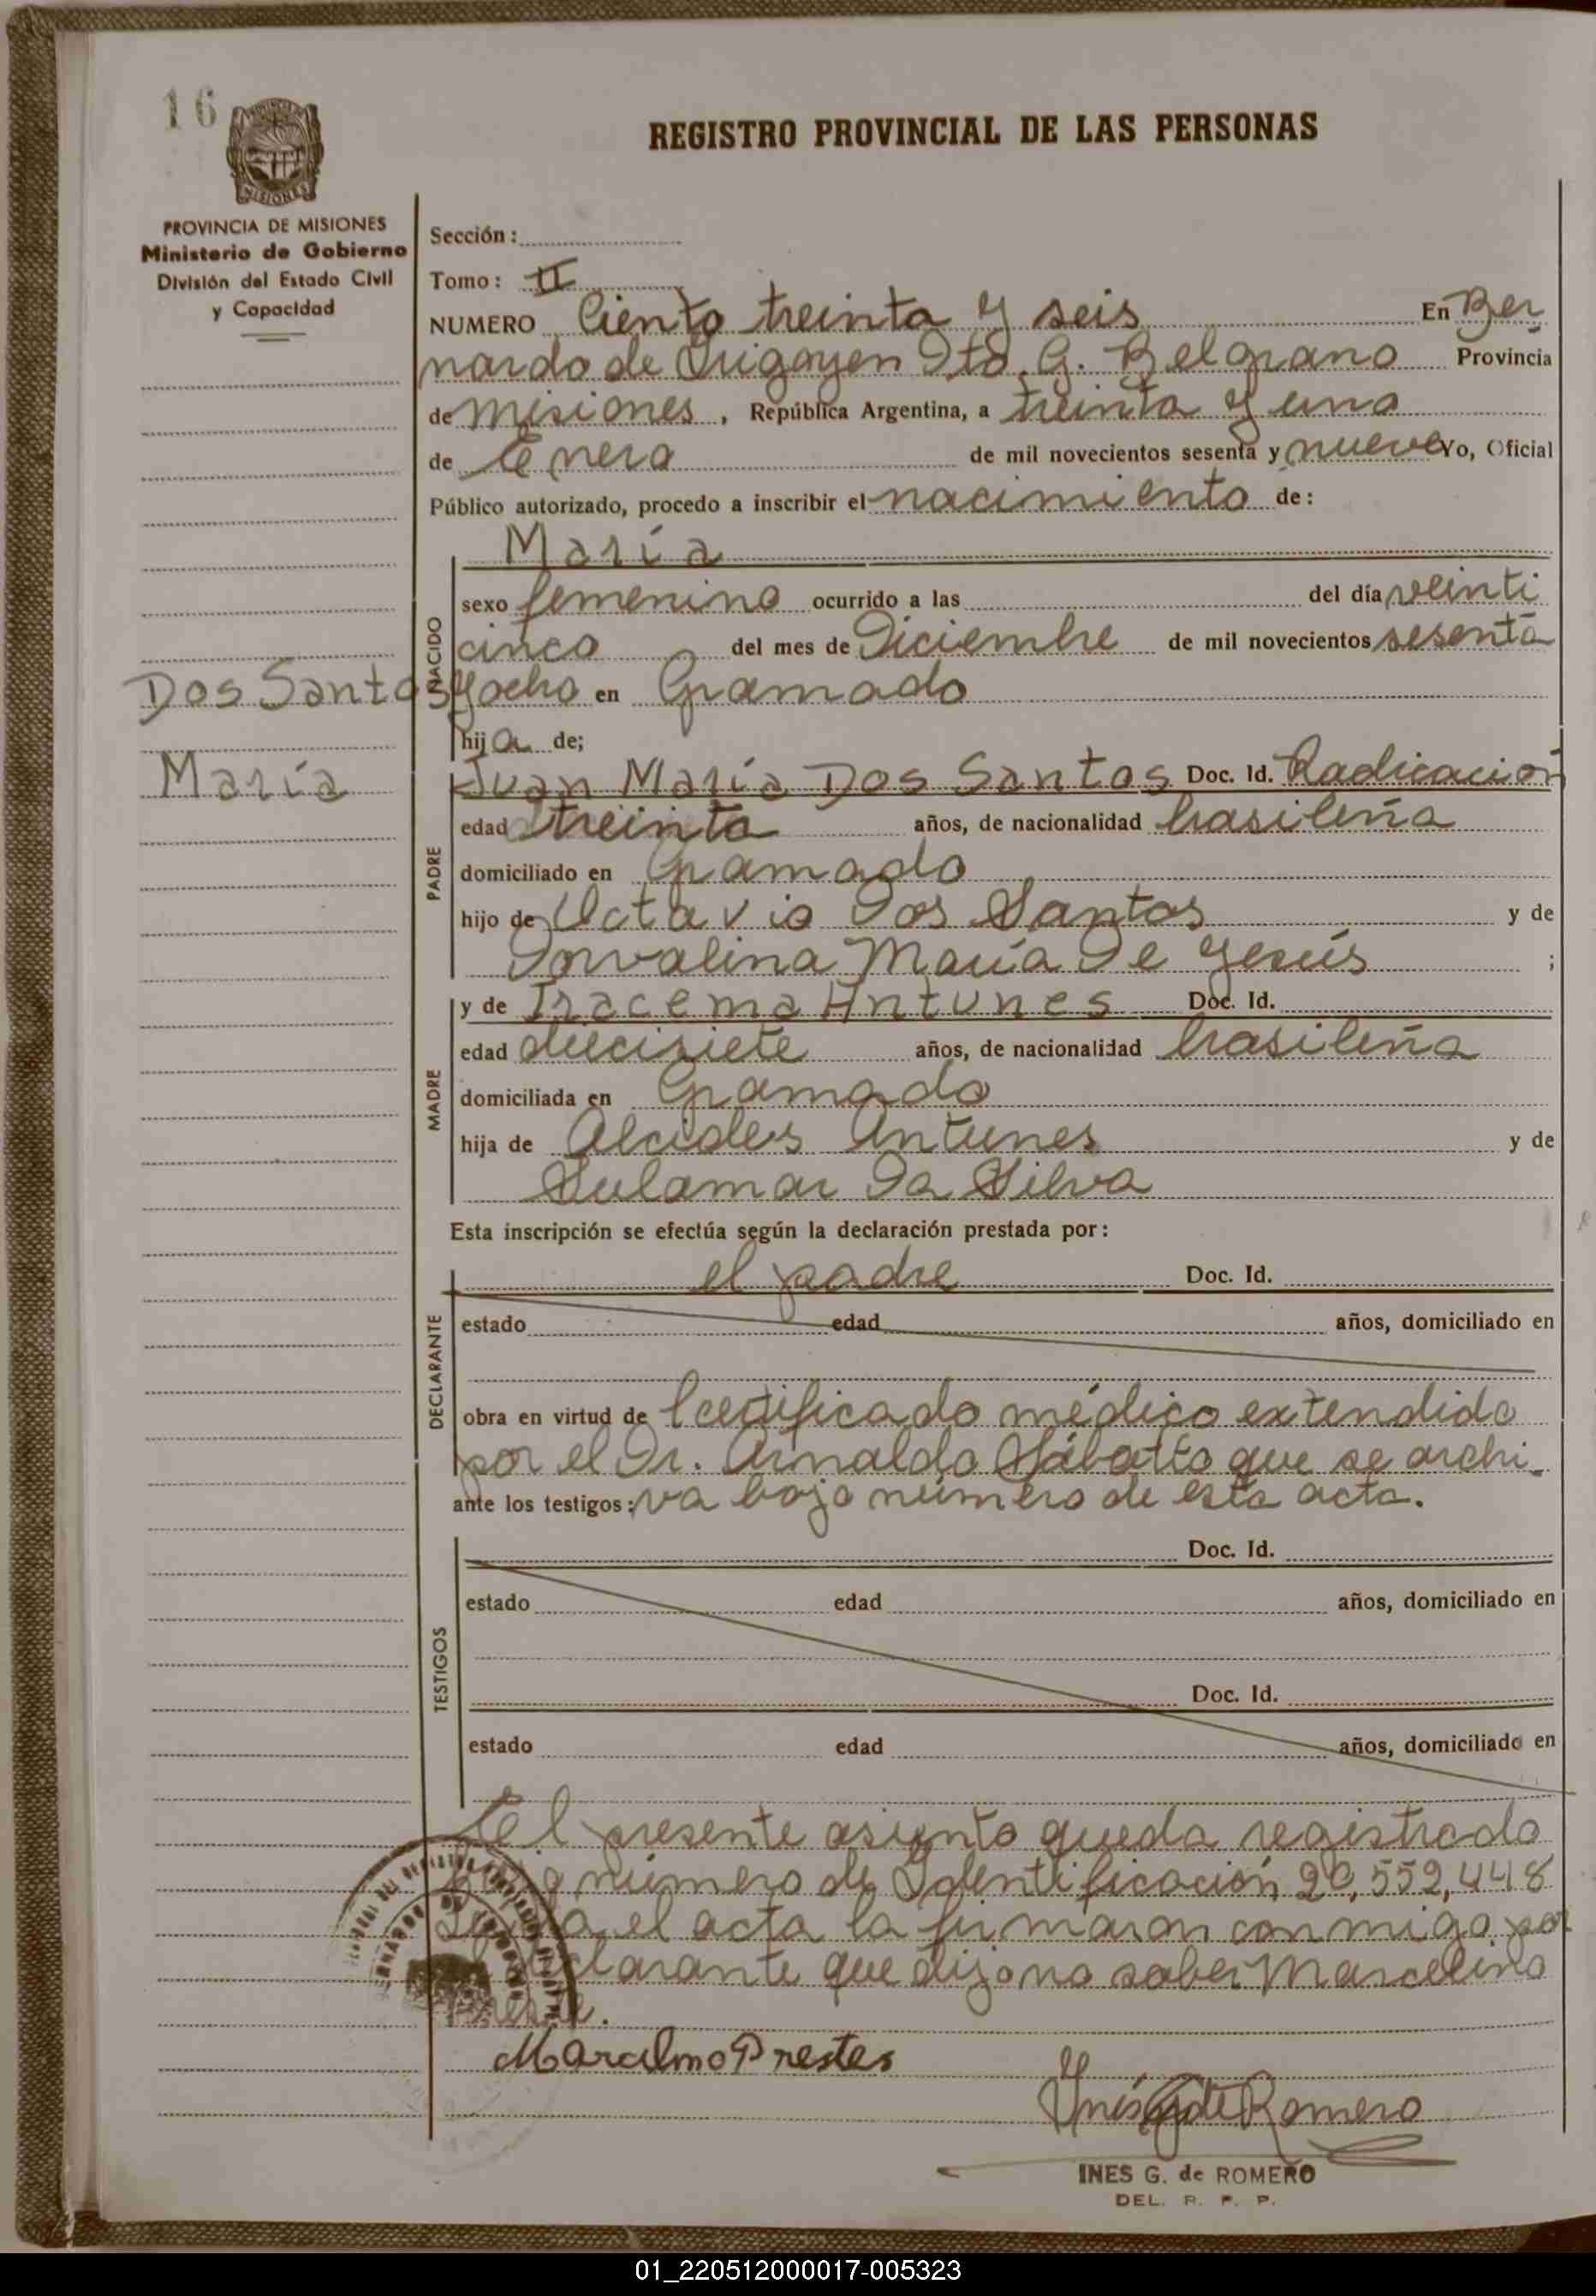 16
REGISTRO PROVINCIAL DE LAS PERSONAS
PROVINCIA DE MISIONES
Ministerio de Gobierno
División del Estado Civil
y Capacidad
Dos Santos
María
Sección :
Tomo : II
NUMERO Ciento treinta y seis En Ber
nardo de Irigoyen Dto. G. Belgrano Provincia
de Misiones, República Argentina, a treinta y uno
de Enero de mil novecientos sesenta y nueve Yo, Oficial
Público autorizado, procedo a inscribir el nacimiento de :
María
NACIDO
sexo femenino ocurrido a las del día veinti
cinco del mes de Diciembre de mil novecientos sesenta
y ocho en Gramado
hija de;
PADRE
Juan María Dos Santos Doc. Id. Radicacion
edad treinta años, de nacionalidad brasileña
domiciliado en Gramado
hijo de Octavio Dos Santos y de
Dorvalina María De Jesús ;
MADRE
y de Iracema Antunes Doc. Id.
edad diecisiete años, de nacionalidad brasileña
domiciliada en Gramado
hija de Alcides Antunes y de
Sulamar Da Silva
Esta inscripción se efectúa según la declaración prestada por :
DECLARANTE
el padre Doc. Id.
estado edad años, domiciliado en
obra en virtud de certificado médico extendido
por el Dr. Arnaldo Sábatto que se archi-
ante los testigos : va bajo número de esta acta.
TESTIGOS
Doc. Id.
estado edad años, domiciliado en
Doc. Id.
estado edad años, domiciliado en
El presente asiento queda registrado
número de Identificación 20,552,448
el acta la firmaron conmigo por
declarante que dijo no saber Marcelino
Marcelino Prestes
Inés G de Romero
INES G. de ROMERO
DEL. R. P. P.
01_220512000017-005323